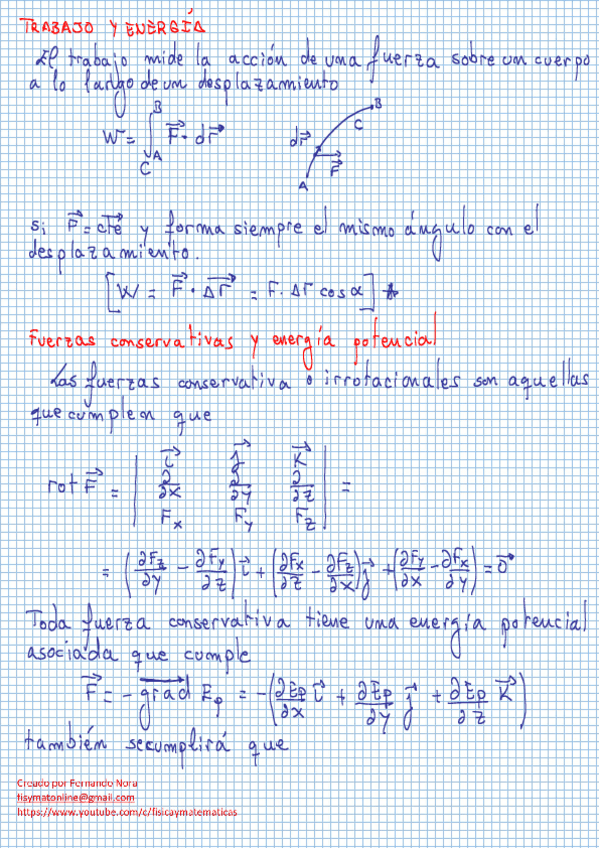 TRABAJO Y ENERGÍA
El trabajo mide la acción de una fuerza sobre un cuerpo
a lo largo de un desplazamiento
W = ∫_{C A}^{B} F⃗ · dr⃗
B
C
dr⃗
F⃗
A
si F⃗ = cte⃗ y forma siempre el mismo ángulo con el
desplazamiento.
[W = F⃗ · Δr⃗ = F · Δr cos α] *
Fuerzas conservativas y energía potencial
Las fuerzas conservativa o irrotacionales son aquellas
que cumplen que
rot F⃗ = | i⃗ j⃗ k⃗ |
| ∂/∂x ∂/∂y ∂/∂z | =
| Fx Fy Fz |
= (∂Fz/∂y − ∂Fy/∂z) i⃗ + (∂Fx/∂z − ∂Fz/∂x) j⃗ + (∂Fy/∂x − ∂Fx/∂y) = 0⃗
Toda fuerza conservativa tiene una energía potencial
asociada que cumple
F⃗ = − grad⃗ Ep = −(∂Ep/∂x i⃗ + ∂Ep/∂y j⃗ + ∂Ep/∂z k⃗)
también secumplirá que
Creado por Fernando Nora
fisymatonline@gmail.com
https://www.youtube.com/c/fisicaymatematicas